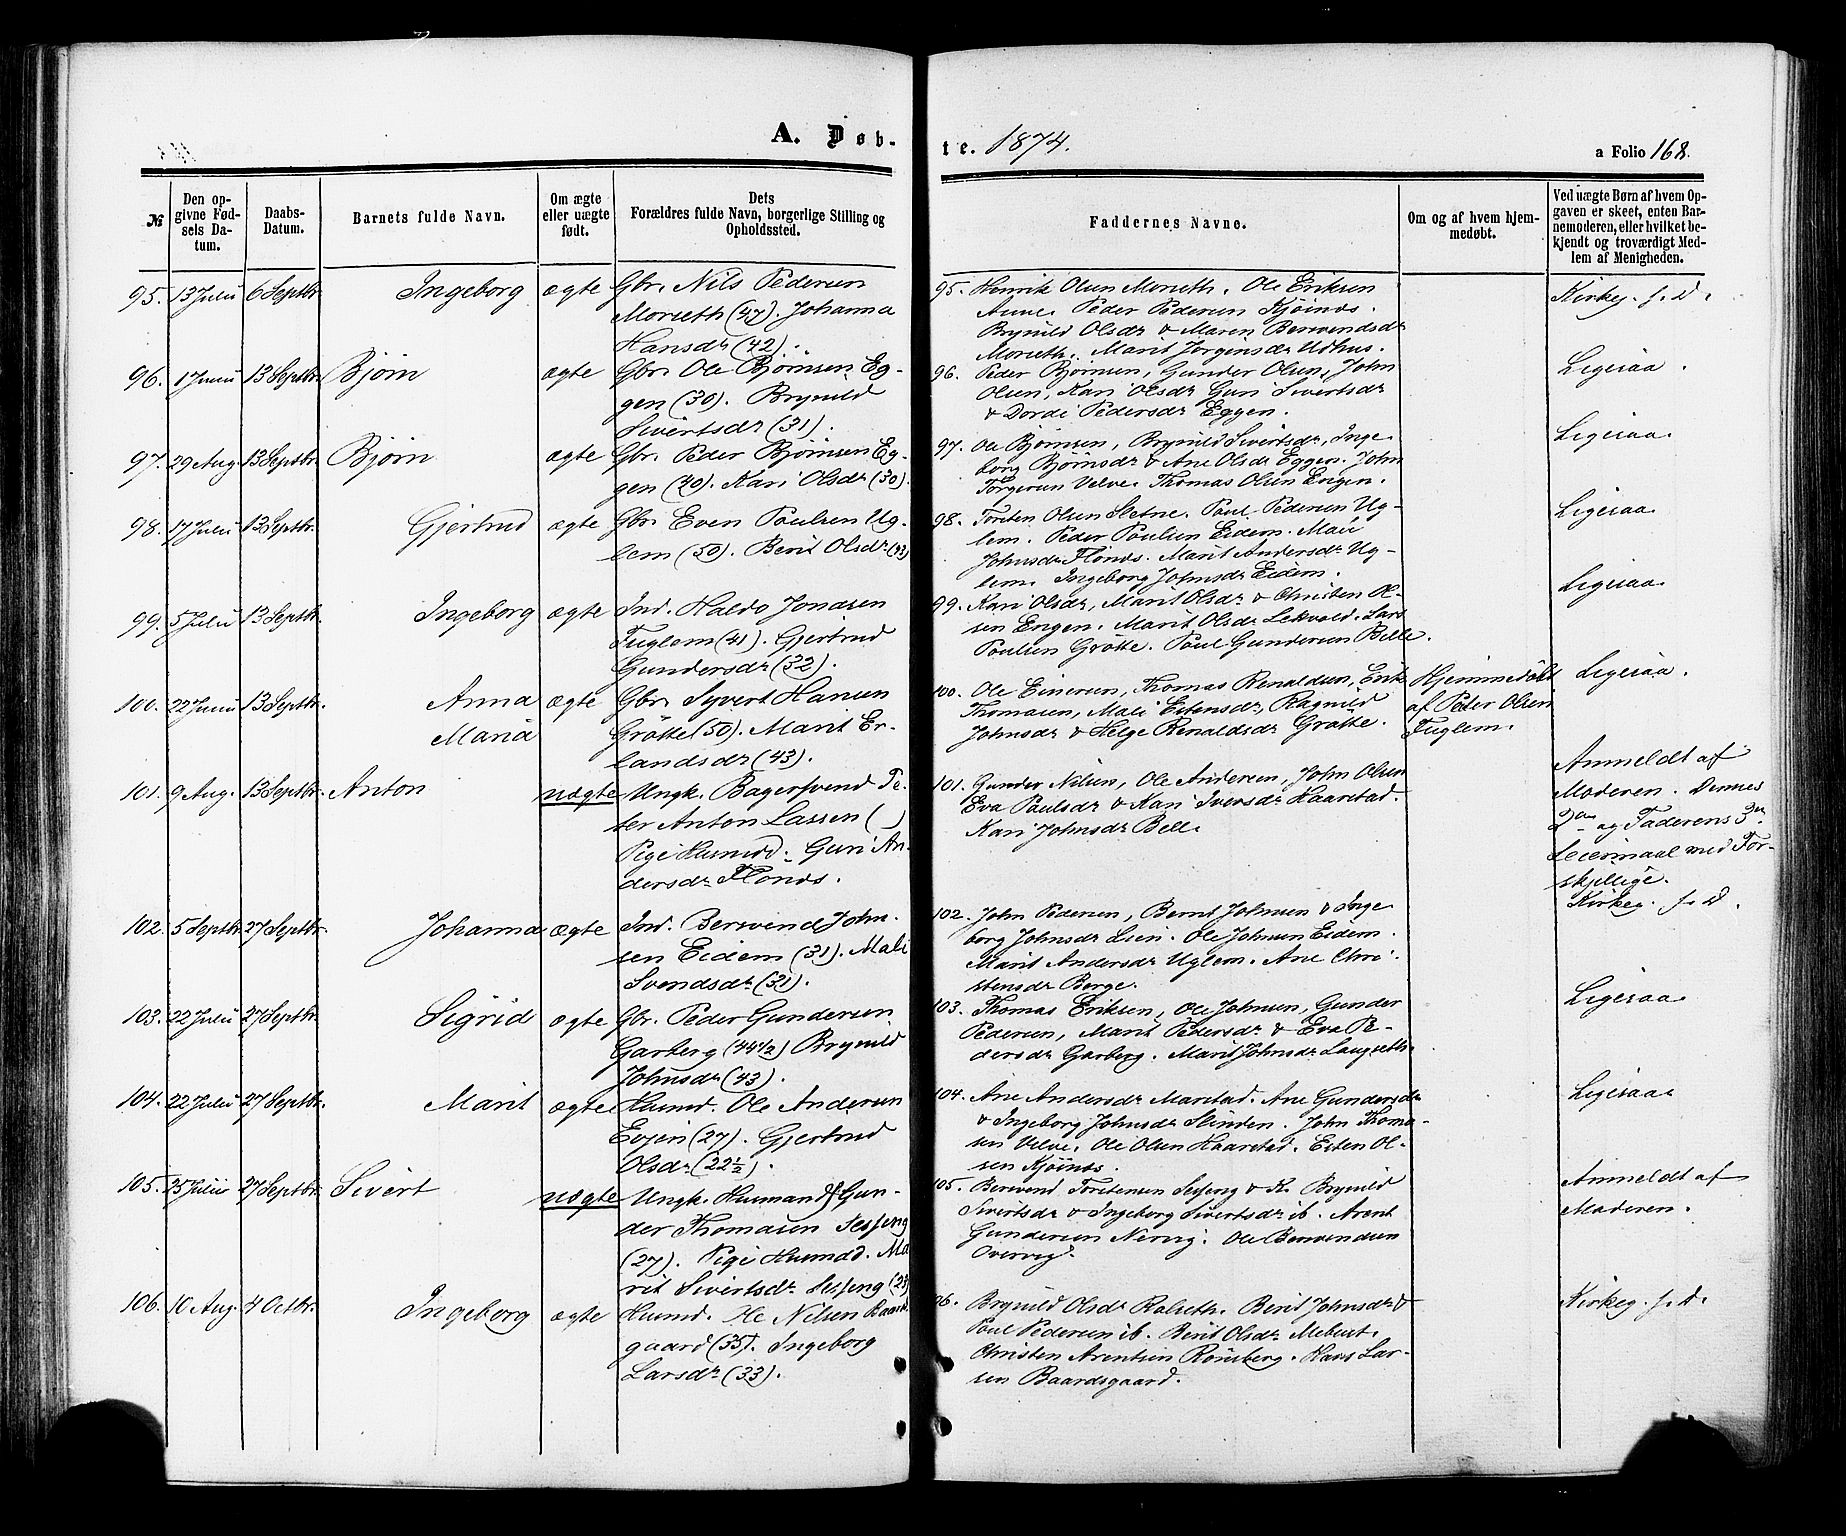 A. Døb-
te. 1874.
a Folio 168.
№
Den op-
givne Fød-
sels Da-
tum.
Daabs-
Datum.
Barnets fulde Navn.
Om ægte
eller uægte
født.
Dets
Forældres fulde Navn, borgerlige Stilling og
Opholdssted.
Faddernes Navne.
Om og af hvem hjem-
medøbt.
Ved uægte Børn af hvem Op-
gaven er skeet, enten Bar-
nemoderen, eller hvilket be-
kjendt og troværdigt Med-
lem af Menigheden.
95. 13 Julii 6 Septbr. Ingeborg ægte Gbr. Nils Pedersen
Morseth (47). Johanna
Hansdr (42).
95. Henrik Olsen Morseth. Ole Eriksen
Aune. Peder Pedersen Kjøinds.
Brynild Olsdr & Maren Berwendsdr
Morseth. Marit Jørgensdr Udhus.
Kirkeg. f. D.
96. 1 Junii 13 Septbr. Bjørn ægte Gbr. Ole Bjørnsen Eg-
gen (30). Brynild
Sivertsdr (31).
96. Peder Bjørnsen, Gunder Olsen, John
Olsen, Kari Olsdr Guri Sivertsdr
& Dordi Pedersdr Eggen.
Ligesaa.
97. 29 Aug. 13 Septbr. Bjørn ægte Gbr. Peder Bjørnsen Eg-
gen (40). Kari Olsdr (30).
97. Ole Bjørnsen, Brynild Sivertsdr, Inge-
borg Bjørnsdr & Ane Olsdr Eggen. John
Torgersen Velve. Thomas Olsen Engen.
Ligesaa.
98. 17 Julii 13 Septbr. Gjertrud ægte Gbr. Even Paulsen Ug-
lem (50). Berit Olsdr
98. Torsten Olsen Sletne. Paul Pedersen Ug-
lem. Peder Paulsen Eidem. Mali
Johnsdr Flønds. Marit Andersdr Ug-
lem. Ingeborg Johnsdr Eidem.
Ligesaa
99. 5 Julii 13 Septbr. Ingeborg ægte Ind. Haldo Jonasen
Fuglem (41). Gjertrud
Gundersdr (32).
99. Kari Olsdr, Marit Olsdr & Christen Ol-
sen Engen. Marit Olsdr Lekvold. Lars
Poulsen Grøtte. Poul Gundersen Belle.
Ligesaa
100. 22 Junii 13 Septbr. Anna ægte Gbr. Syvert Hansen
Maria Grøtte (50). Marit Er-
landsdr (43).
100. Ole Einersen, Thomas Renaldsen, Erik
Thomasen, Mali Estensdr, Ragnild
Johnsdr & Helge Renaldsdr Grøtte.
Hjemmedøbt
af Peder Olsen
Fuglem.
Ligesaa.
101. 9 Aug. 13 Septbr. Anton uægte Ungk. Bagersvend Pe-
ter Anton Lassen ( )
Pige Husmdd. Guri An-
dersdr Flønds.
101. Gunder Nilsen, Ole Andersen, John Olsen
Eva Paulsdr & Kari Iversdr Haarstad.
Kari Johnsdr Bell.
Anmeldt af
Moderen. Dennes
2det og Faderens 3die
Leiermaal med For-
skjellige.
102. 5 Septbr. 27 Septbr. Johanna ægte Ind. Berwend John-
sen Eidem (31). Mali
Svendsdr (31).
102. John Pedersen, Bernt Johnsen & Inge-
borg Johnsdr Lien. Ole Johnsen Eidem.
Marit Andersdr Uglem. Ane Chri-
stensdr Berge.
Kirkeg. f. D.
103. 22 Julii 27 Septbr. Sigrid ægte Gbr. Peder Gundersen
Garberg (44 1/2) Brynild
Johnsdr (43).
103. Thomas Eriksen, Ole Johnsen, Gunder
Pedersen, Marit Pedersdr & Eva Pe-
dersdr Garberg. Marit Johnsdr Langseth.
Ligesaa
104. 22 Julii 27 Septbr. Marit ægte Husmd. Ole Andersen
Evjen (27). Gjertrud
Olsdr (22 1/2).
104. Ane Andersdr Marstad. Ane Gundersdr
& Ingeborg Johnsdr Slinden. John Thoma-
sen Velve. Ole Olsen Haarstad. Esten Ol-
sen Kjøinds.
Ligesaa
105. 25 Julii 27 Septbr. Sivert uægte Ungk. Husmand Gun-
der Thomasen Sesseng
(27). Pige Husmdd. Ma-
rit Sivertsdr Sesseng
105. Berwend Torstensen Sesseng & K. Brynild
Sivertsdr & Ingeborg Sivertsdr ib. Arent
Gundersen Nervig. Ole Berwendsen
Overvig.
Anmeldt af
Moderen.
106. 10 Aug. 4 Octbr. Ingeborg ægte Husmd. Ole Nilsen Baards-
gaard (35). Ingeborg
Larsdr (33).
96. Brynild Olsdr Rolseth. Berit Johnsdr &
Poul Pedersen ib. Berit Olsdr Mebust.
Christen Arentsen Rønsberg. Hans Lar-
sen Baardsgaard.
Kirkeg. f. D.